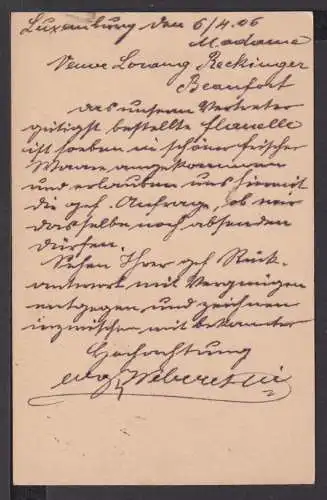 Luxemburg den 6/4.06
Madame
Veuve Lorang Reckinger
Beaufort
das unserm Vertreter
gütigst bestellte Flanelle
ist soeben in schöner frischer
Waare angekommen
und erlauben uns hiermit
die gef. Anfrage, ob wir
dasselbe noch absenden
dürfen.
Sehen Ihrer gef Rück-
antwort mit Vergnügen
entgegen und zeichnen
inzwischen mit bekannter
Hochachtung
Weber & Cie